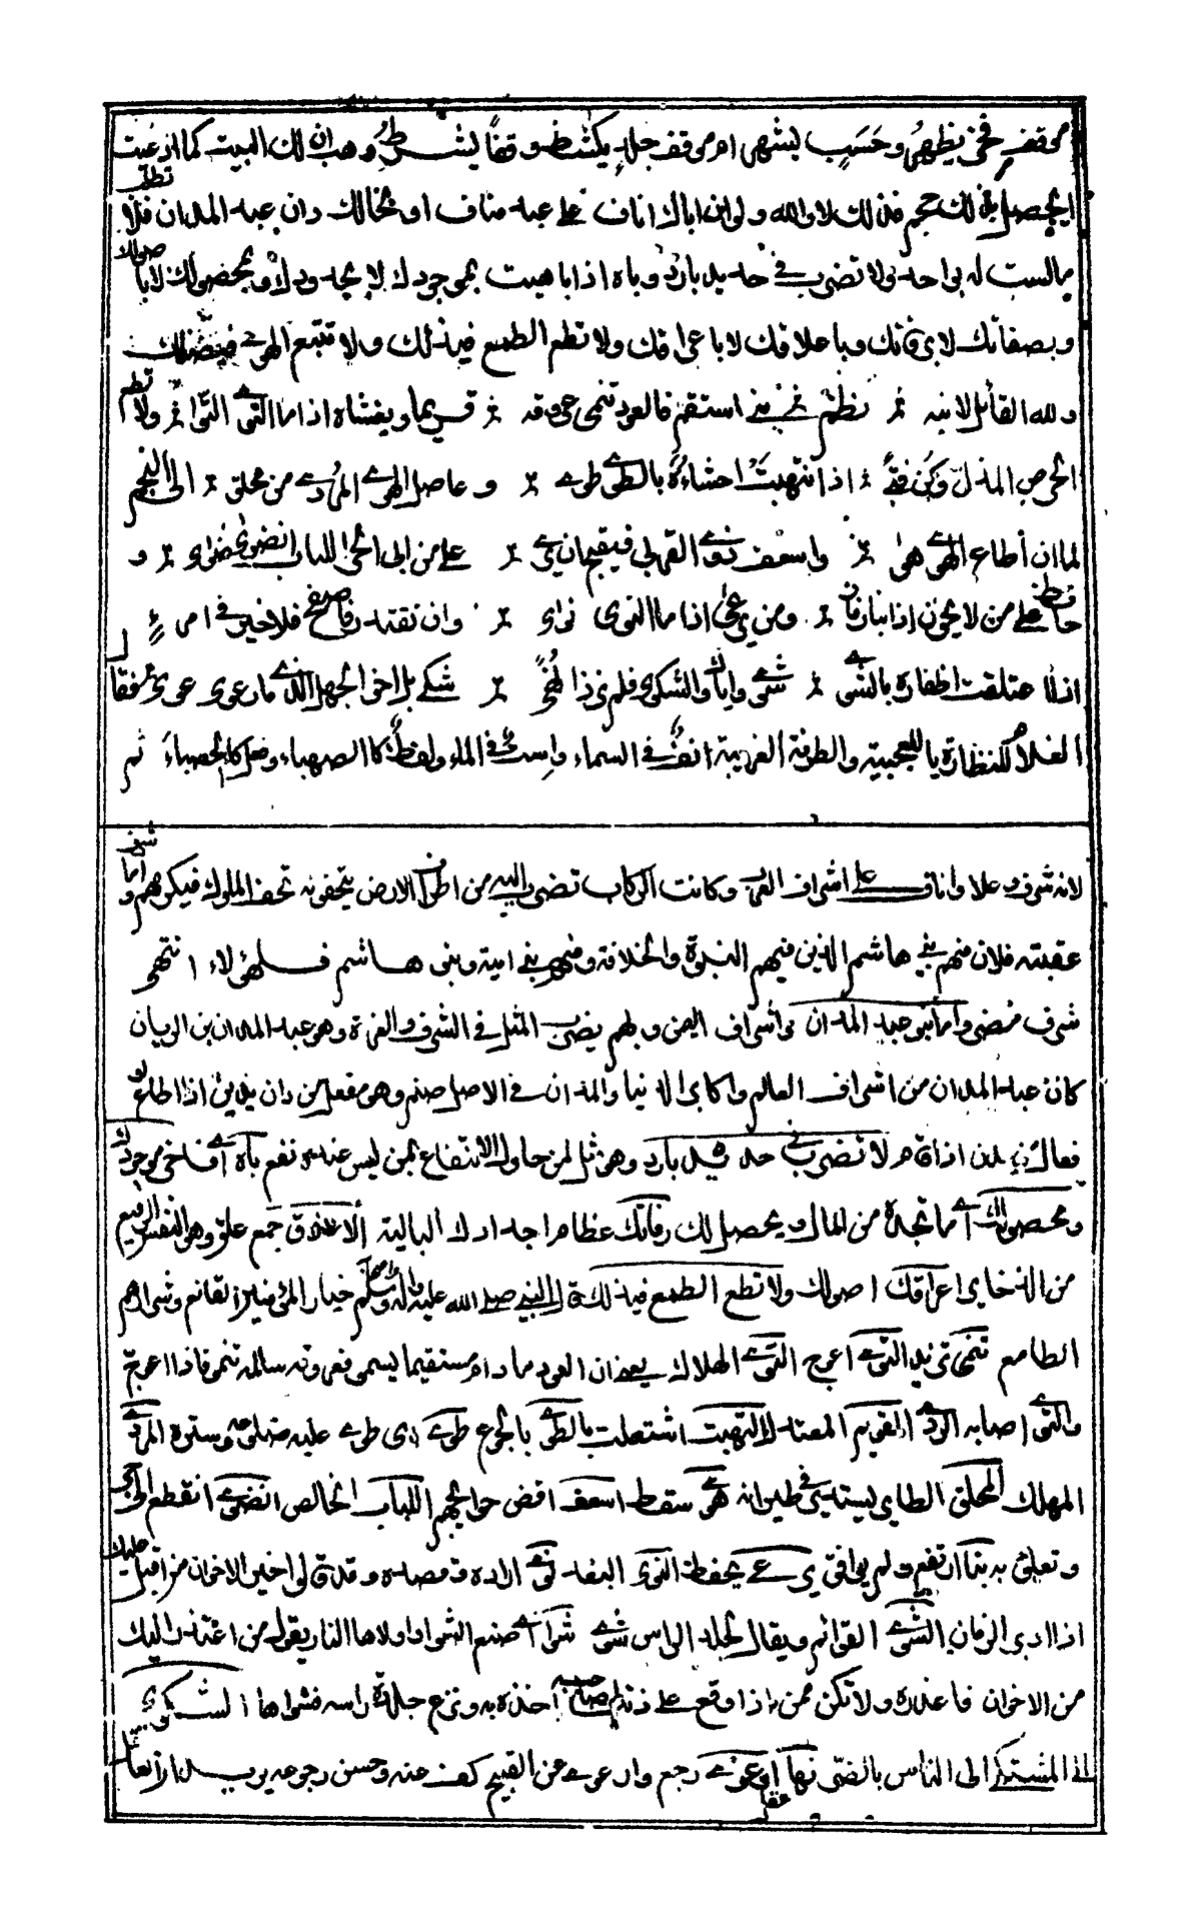 موقف فخر يظهر وحسب يشهر ام موقف جلد يكشط وقفا يشرط وهب ان لك البيت كما ادعيت
ايحصل بذلك حجم قذالك لا والله ولو ان اباك اناف على عبد مناف او لخالك دان عبد المدان فلا تطلب
ما لست له بواجد ولا تضرب في حديد بارد وباه اذا باهيت بموجودك لا بجدودك وبمحصولك لا باصولك
وبصفاتك لا برفاتك وباعلاقك لا باعراقك ولا تطع الطمع فيذلك ولا تتبع الهوى فيضلك
ولله القائل لابنه نظم بني استقم فالعود تنمي عروقه قويما ويغشاه اذا ما التوى التوا ولا تطع
الحرص المذل وكن فتى اذا التهبت احشاءه بالطوى طوى وعاص الهوى المردي من محلق الى النجم
لما ان أطاع الهوى هوى واسعف ذوي القربى فيقبح ان يرى على من الى الحر اللباب انضوى ضوى و
حافظ على من لا يخون اذا نبا زمان ومن يرعى اذا ما النوى نوى وان تقتدر فاصفح فلا خير في امرء
اذا اعتلقت اظفاره بالشوى شوى واياك والشكوى فلم تر ذا نهى شكى بل اخو الجهل الذي ما ارعوى عوى فقال
الغلام للنظارة يا للعجيبة والطرفة الغريبة انف في السماء واست في الماء ولفظ كالصهباء وفعل كالحصباء ثم
لانه شرف وعلا واناف على اشراف العرب وكانت الركاب تضرب اليه من اطراف الارض يتحفونه تحف الملوك فيكرمهم واما شرف
عقبه فلان منهم بني هاشم الذين فيهم النبوة والخلافة ومنهم بني امية وبنى هاشم فلهؤلاء انتهى
شرف مضر واما بنو عبد المدان فاشراف اليمن وبهم يضرب المثل في الشرف والعزة وهو عبد المدان بن الريان
كان عبد المدان من اشراف العالم واكابر الدنيا والمدان في الاصل صنم وهو مفعل من دان يدين اذا اطاع
فعال من مدن اذا اقام لا تضرب في حديد بارد وهو مثل لمن حاول الانتفاع بمن ليس عنده نفع باه أي فاخر بموجودك
ومحصولك أي ما تجده من المال ويحصل لك رفاتك عظام اجدادك البالية الاعلاق جمع علق وهو النفيس الرفيع
من الذخاير اعراقك اصولك ولا تطع الطمع فيذلك قال النبي صلى الله عليه واله وسلم خيار المؤمنين القانع وشرارهم
الطامع تنمى تزيد التوى اعوج التوى الهلاك يعني ان العود ما دام مستقيما يسمى فعروقه سالمة تنمى فاذا اعوج
والتوى اصابه الردى القويم المعتدل التهبت اشتعلت بالطوى بالجوع طوى اى طوى عليه ضلوعه وستره المردي
المهلك المحلق الطاير يستدير في طيرانه هوى سقط اسعف اقض حوائجهم اللباب الخالص انضوى انقطع الى الحر
وتعلق به نبا ارتفع ولم يوافق يرعى يحفظ النوى البعد نوى اراده وقصده وقد قيل خير الاخوان من اقبل عليك
اذا ادبر الزمان الشوى القوائم ويقال لجلد الراس شوى شوى أي صنع الشواء اولاها النار يقول من اعتذر اليك
من الاخوان فاعذره ولا تكن ممن اذا وقع على ذنب صاحبه اخذه به ونزع جلدة راسه فشواها الشكوى
اي المشتكي الى الناس بالضر نها او عوى رجع وارعوى عن القبيح كف عنه وحسن رجوعه يريد